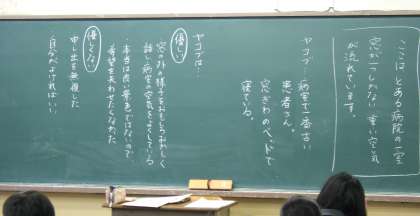 ここは とある病院の一室
窓が一つしかない 重い空気
が流れています。
ヤコブ…病室で一番古い
患者さん。
窓ぎわのベッドで
寝ている。
ヤコブは…
優しい
窓の外の様子をおもしろおかしく
話し病室の空気をよくしている
・本当は良い景色ではないので
希望を失わせたくなかった
優しくない
申し出を無視した
自分がよければいい